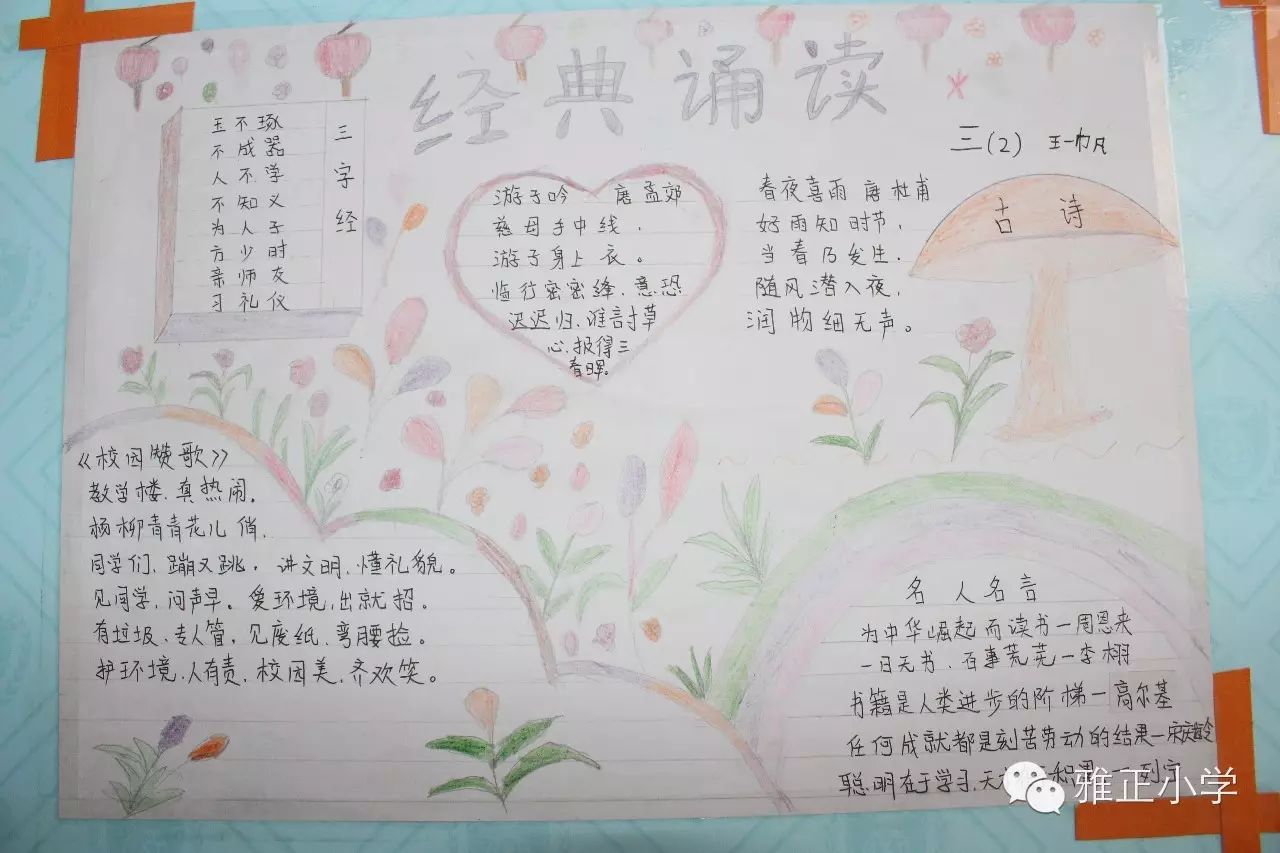 经典诵读
三(2) 王一帆
三字经
玉不琢
不成器
人不学
不知义
为人子
方少时
亲师友
习礼仪
游子吟 唐 孟郊
慈母手中线,
游子身上衣。
临行密密缝、意恐
迟迟归、谁言寸草
心、报得三
春晖。
古诗
春夜喜雨 唐 杜甫
好雨知时节,
当春乃发生.
随风潜入夜,
润物细无声。
《校园赞歌》
教学楼、真热闹。
杨柳青青花儿俏.
同学们、蹦又跳, 讲文明、懂礼貌。
见同学,问声早。爱环境,出就招。
有垃圾、专人管,见废纸、弯腰捡。
护环境、人有责、校园美、齐欢笑。
名人名言
为中华崛起而读书一周恩来
一日无书、百事荒芜一李栩
书籍是人类进步的阶梯一高尔基
任何成就都是刻苦劳动的结果一宋庆龄
聪明在于学习,天
雅正小学